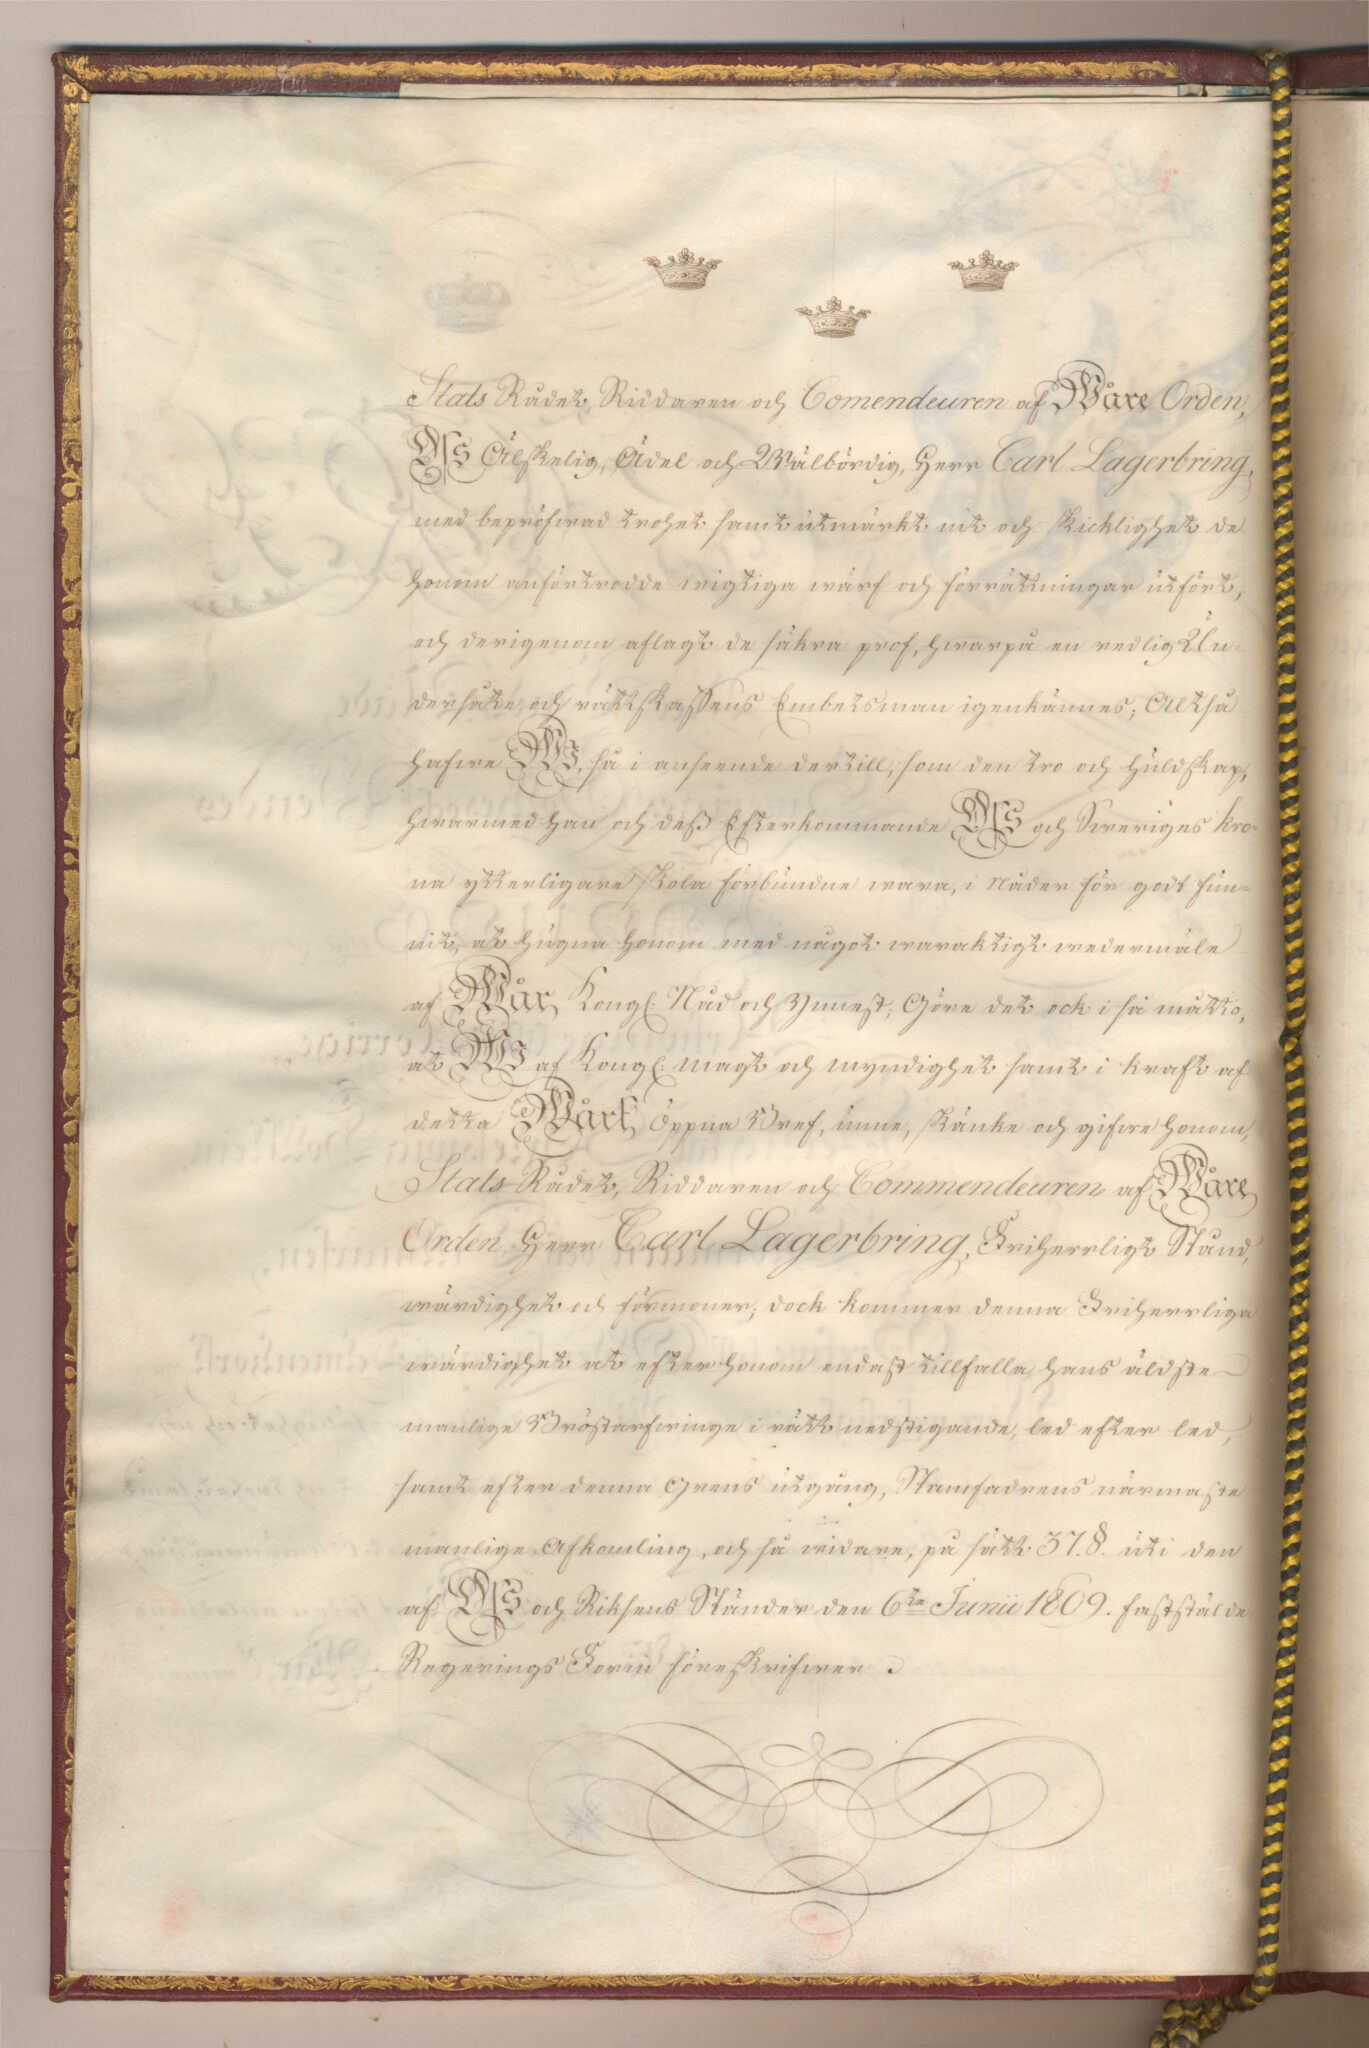 Stats Rådet, Riddaren och Comendeuren af Wåre Orden,
Oss Älskelig, Ädel och Wälbördig, Herr Carl Lagerbring,
med bepröfwad trohet samt utmärkt nit och skicklighet de
honom anförtrodde wigtiga wärf och förrättningar utfört,
och derigenom aflagt de säkra prof, hwarpå en redlig Un-
dersåte och rättskaffens Embetsman igenkännes; Altså
hafwe Wi, så i anseende dertill, som den tro och huldskap,
hwarmed han och dess Efterkommande Oss och Sweriges kro-
na ytterligare skola förbundne wara, i Nåder för godt fun-
nit, at hugna honom med något waraktigt wedermäle
af Wår Kongl: Nåd och Ynnest; Göre det ock i så måtto,
at Wi af Kongl: magt och myndighet samt i kraft af
detta Wårt öppna Bref, unne, skänke och gifwe honom,
Stats Rådet, Riddaren och Commendeuren af Wåre
Orden, Herr Carl Lagerbring, Friherrligt Stånd,
wärdighet och förmoner; dock kommer denna Friherrliga
wärdighet at efter honom endast tillfalla hans äldste
manlige Bröstarfwinge i rätt nedstigande, led efter led,
samt efter denna Grens utgång, Stamfadrens närmaste
manlige Afkomling, och så widare, på sätt 37. §. uti den
af Oss och Riksens Ständer den 6te Junii 1809. faststälde
Regerings Form föreskrifwer.